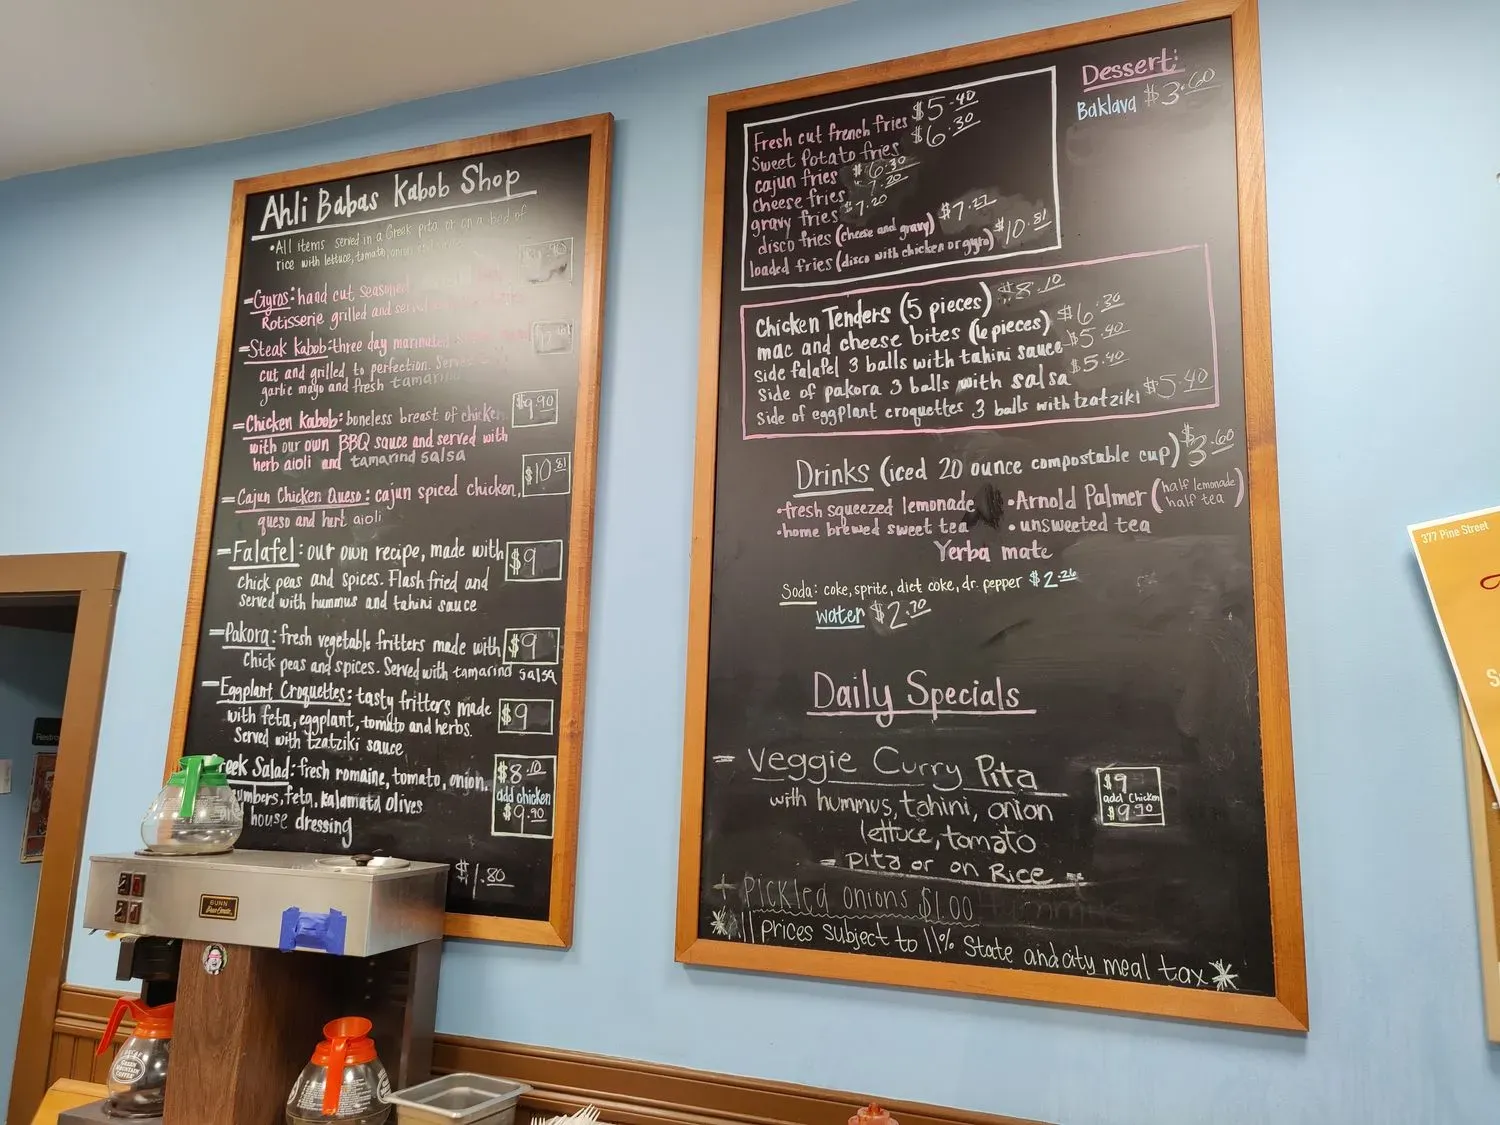 Ahli Babas Kabob Shop
• All items served in a Greek pita or on a bed of
rice with lettuce, tomato, onion
- Gyros: hand cut seasoned
Rotisserie grilled and served
- Steak Kabob: three day marinated
cut and grilled, to perfection. Served
garlic mayo and fresh tamarind
- Chicken Kabob: boneless breast of chicken $9.90
with our own BBQ sauce and served with
herb aioli and tamarind salsa
- Cajun Chicken Queso: cajun spiced chicken, $10.81
queso and hurt aioli
- Falafel: our own recipe, made with $9
chick peas and spices. Flash fried and
served with hummus and tahini sauce
- Pakora: fresh vegetable fritters made with $9
Chick peas and spices. Served with tamarind salsa
- Eggplant Croquettes: tasty fritters made $9
with feta, eggplant, tomato and herbs.
Served with tzatziki sauce
eek Salad: fresh romaine, tomato, onion, $8.10
umbers, feta, kalamata olives add chicken
house dressing $9.90
$1.80
Fresh cut french fries $5.40
Sweet Potato fries $6.30
cajun fries $6.30
cheese fries 7.20
gravy fries $7.20
disco fries (cheese and gravy) $7.27
loaded fries (disco with chicken or gyro) $10.81
Dessert:
Baklava $3.60
Chicken Tenders (5 pieces) $8.10
mac and cheese bites (6 pieces) $6.30
side falafel 3 balls with tahini sauce $5.40
side of pakora 3 balls with salsa $5.40
side of eggplant croquettes 3 balls with tzatziki $5.40
Drinks (iced 20 ounce compostable cup) $3.60
• fresh squeezed lemonade • Arnold Palmer (half lemonade half tea)
• home brewed sweet tea • unsweeted tea
Yerba mate
Soda: coke, sprite, diet coke, dr. pepper $2.26
water $2.70
Daily Specials
- Veggie Curry Pita $9
with hummus, tahini, onion add Chicken
lettuce, tomato $9.90
- Pita or on Rice -
+ Pickled onions $1.00
*All prices subject to 11% State and city meal tax*
377 Pine Street
BUNN
GREEN MOUNTAIN COFFEE